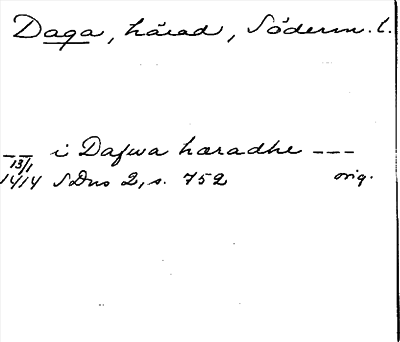 Daga, härad, Söderm. l.
--- i Dafwa hæradhe ---
13/1
1414 SDns 2, s. 752 orig.